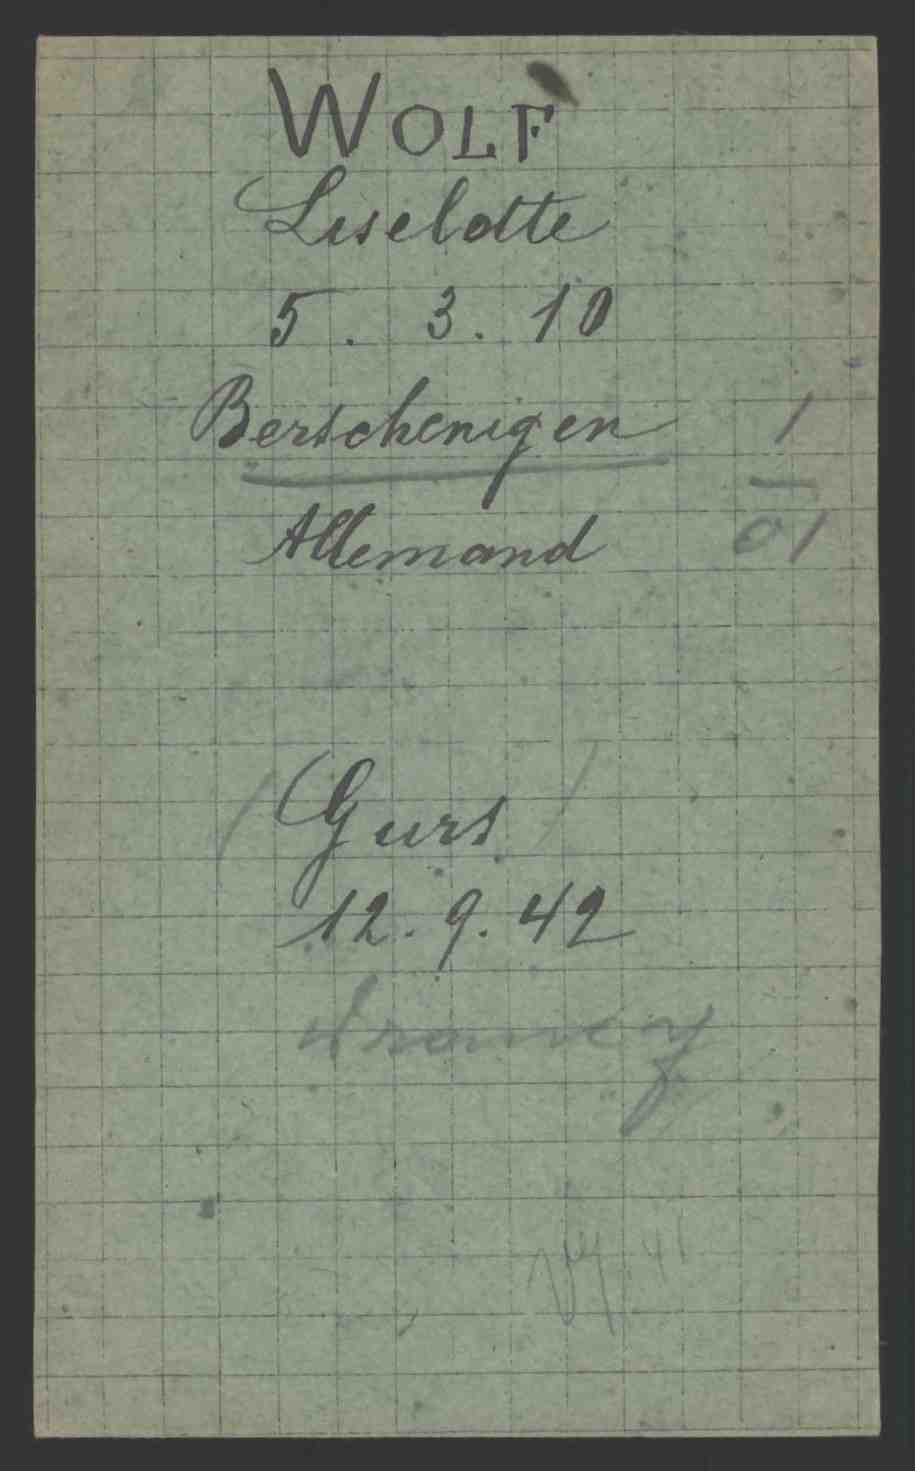 WOLF
Liselotte
5. 3. 10
Bertchenigen
1
Allemand
01
(Gurs)
12.9.42
Drancy